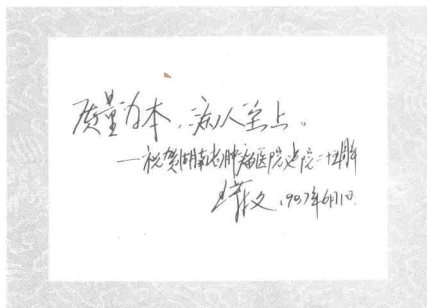 质量为本，病人至上。
—祝贺湖南省肿瘤医院建院二十五周年
文 1997年6月1日